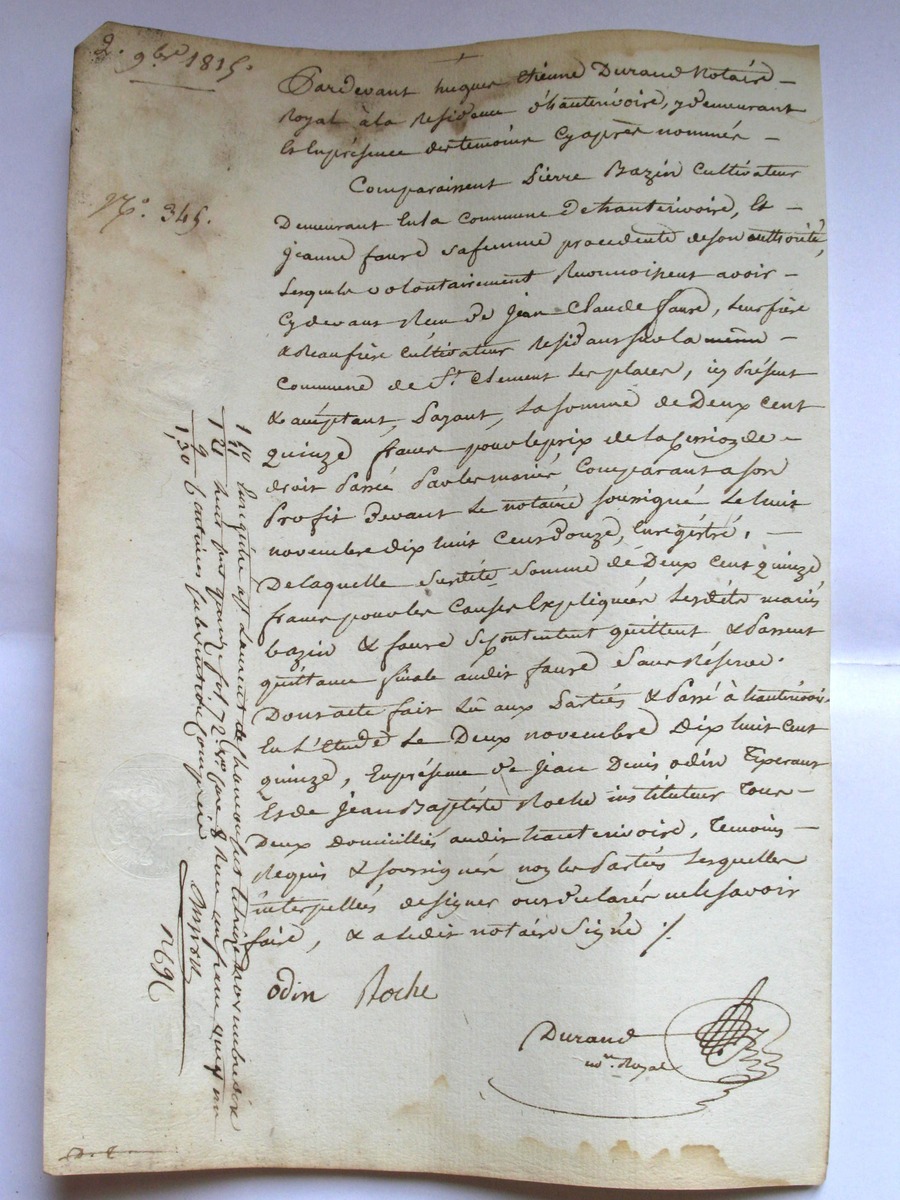 2. 9bre 1815.
N.o 345.
Pardevant hugues Etienne Durand Notaire
Royal à la Residence d'hauterivoire, y demeurant
Et En présence des temoins Cy après nommés
Comparaissent Pierre Bazin Cultivateur
Demeurant En la Commune de hauterivoire, Et
jeanne faure sa femme procedente de son authorité,
Lesquels volontairement Reconnoissent avoir
Cy devant Reçu de jean Claude faure, leur frère
& Beaufrère Cultivateur Residant sur la même
Commune de St. Clement Les places, icy Présent
& acceptant, Payant, La somme de Deux cent
quinze francs pour le prix de la Cession de
droit Passée Par les mariés Comparant a son
Profit Devant Le notaire soussigné Le huit
novembre dix huit Cent douze, Enregistré.
De laquelle susdite somme de Deux Cent quinze
francs pour les Causes Expliquées Lesdits mariés
bazin & faure se Contentent quittent & Passent
quittance finale audit faure Sans Réserve.
Dont acte fait Lû aux Parties & Passé à hauterivoire
En L'Etude Le Deux novembre Dix huit Cent
quinze, En présence de jean Denis odin
Et de jean Baptiste Roche instituteur Tous
Deux domiciliés audit hauterivoire, Temoins
Requis & soussignés non les Parties Lesquelles
interpellées de signer ont déclarés ne le savoir
faire, & a ledit notaire Signé ./.
odin Roche
Durand
nore. Royal
Enregistré à St Laurent de Chamousset le dix novembre 1815
& Reçu un franc vingt un
Centimes subvention Comprise